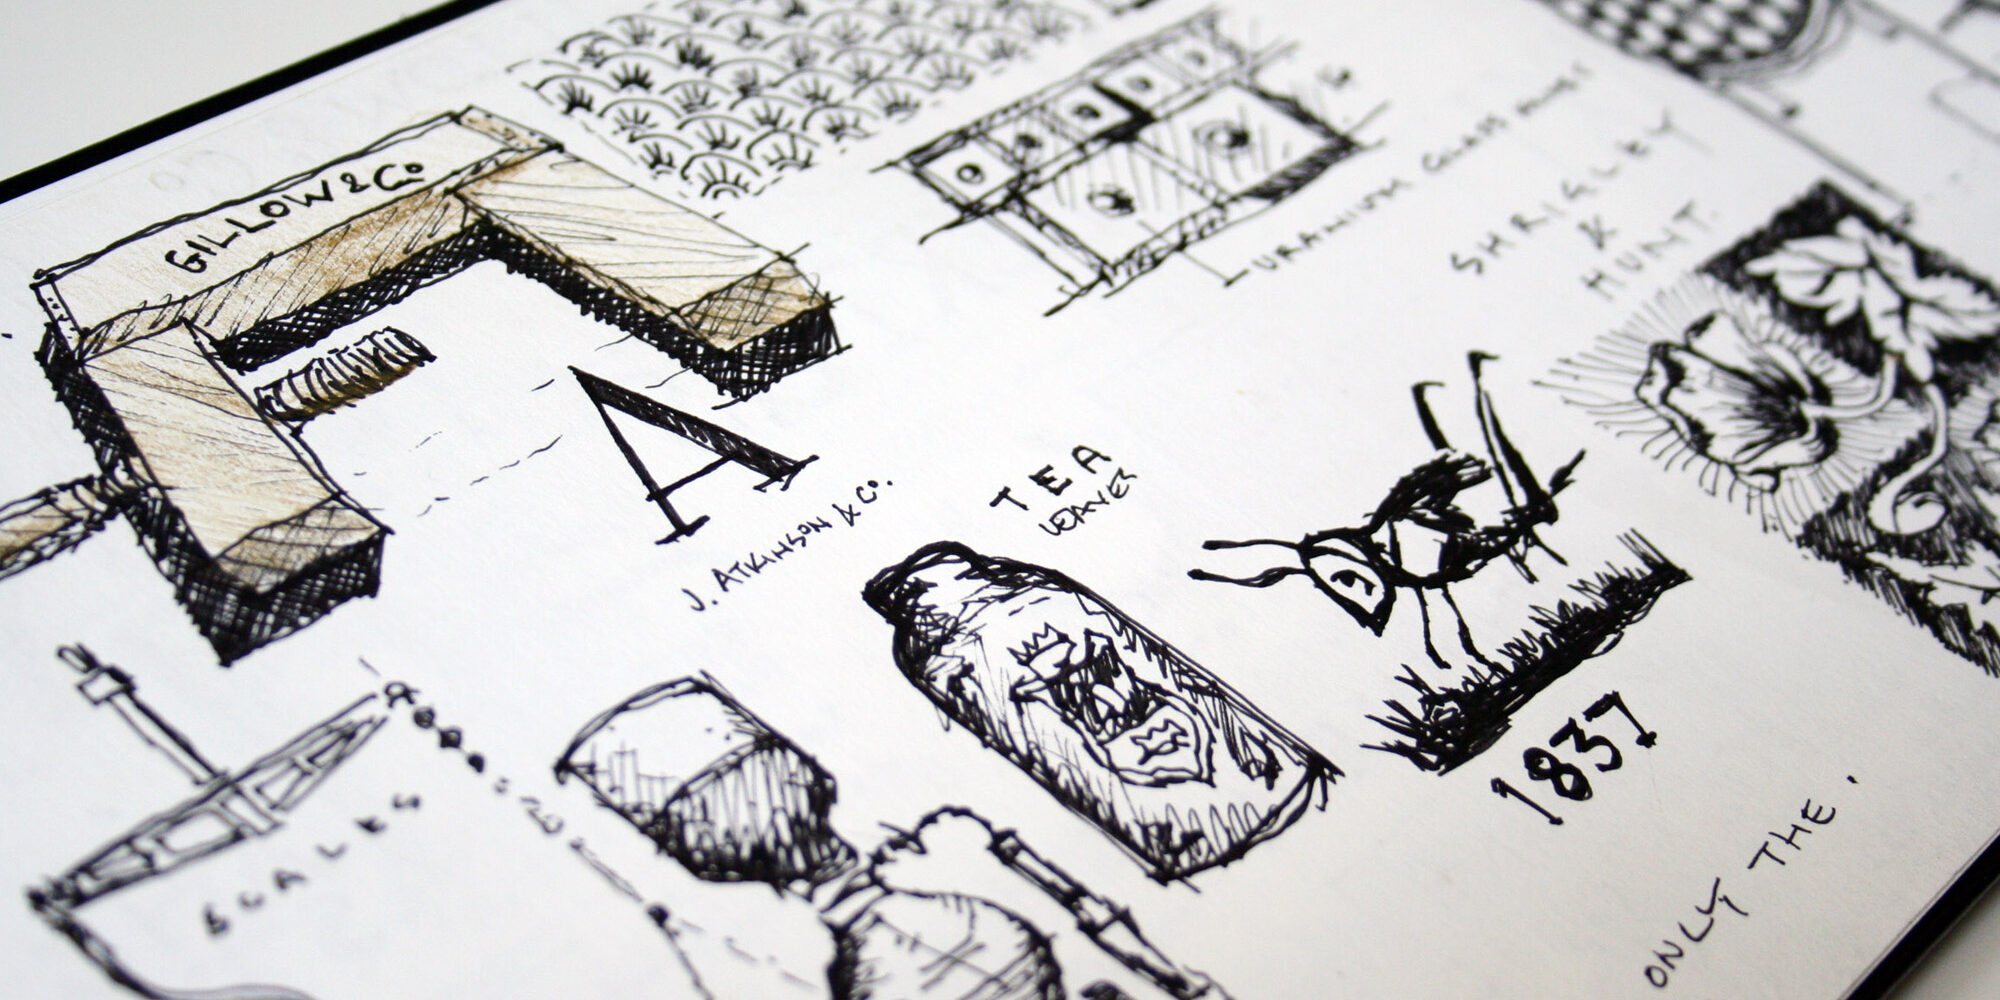 GILLOW & Co
URANIUM GLASS
SHRIGLEY
&
HUNT.
A
J. ATKINSON & Co.
TEA
LEAVES
1837
SCALES
ONLY THE.